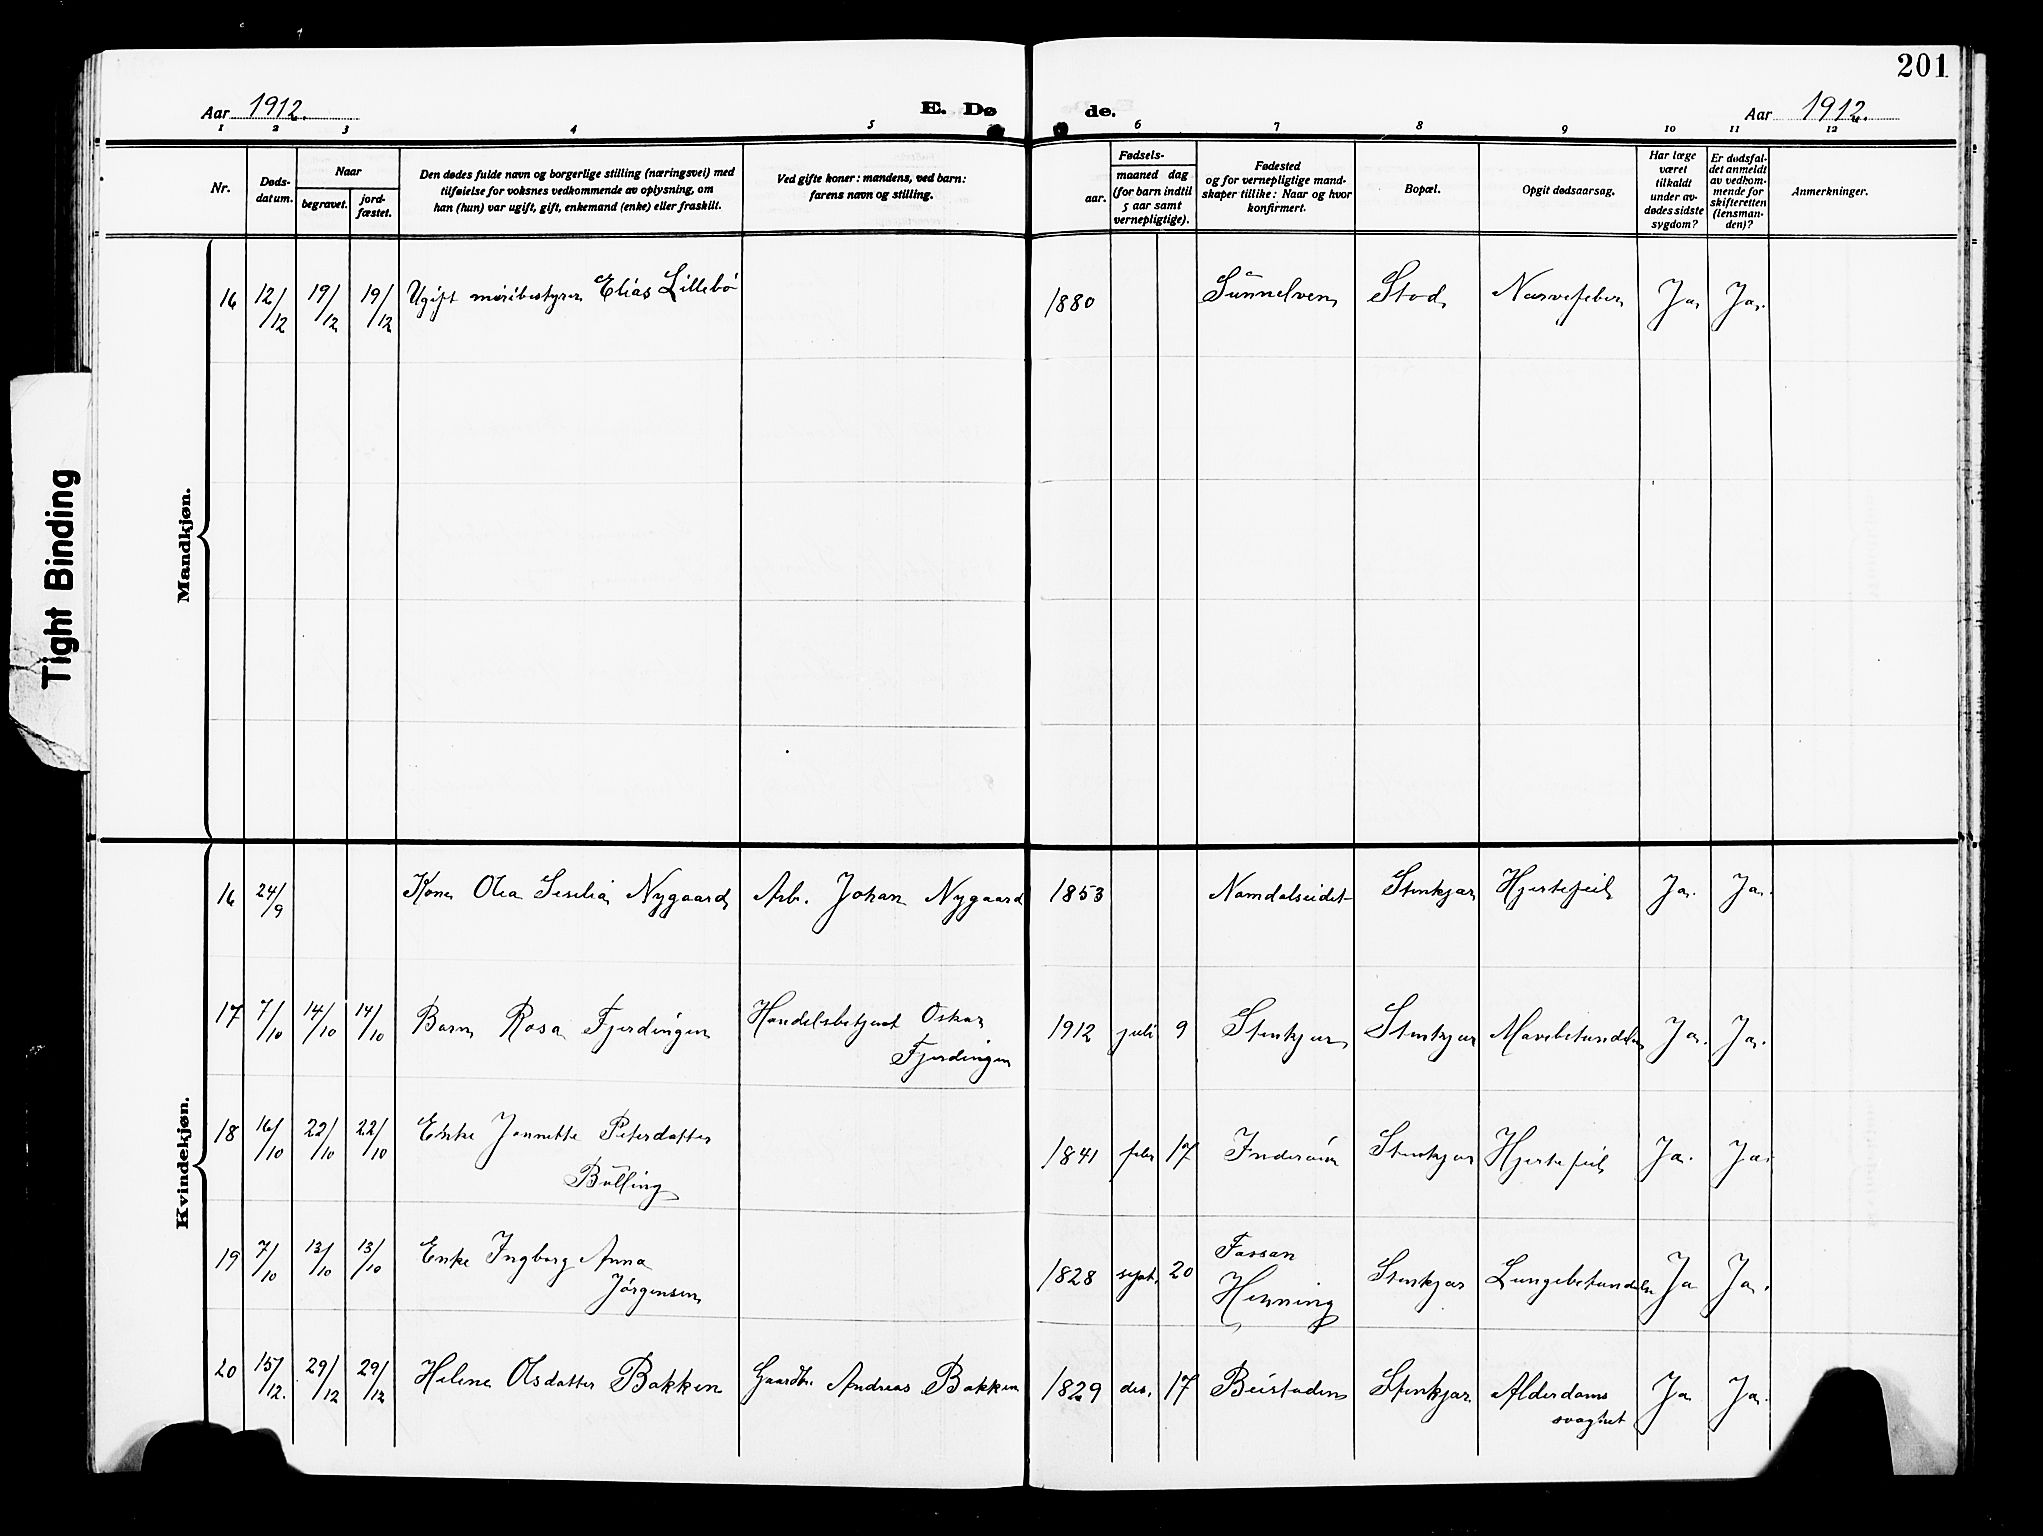 201
Aar 1912.
E. Dø de.
Aar 1912.
1 2 3 4 5 6 7 8 9 10 11 12
Nr.
Døds-
datum.
Naar
begravet.
jord-
fæstet.
Den dødes fulde navn og borgerlige stilling (næringsvei) med
tilføielse for voksnes vedkommende av oplysning, om
han (hun) var ugift, gift, enkemand (enke) eller fraskilt.
Ved gifte koner: mandens, ved barn:
farens navn og stilling.
Fødsels-
aar.
maaned dag
(for barn indtil
5 aar samt
vernepligtige).
Fødested
og for vernepligtige mand-
skaper tillike: Naar og hvor
konfirmert.
Bopæl.
Opgit dødsaarsag.
Har læge
været
tilkaldt
under av-
dødes sidste
sygdom?
Er dødsfal-
det anmeldt
av vedkom-
mende for
skifteretten
(lensman-
den)?
Anmerkninger.
Tight Binding
Mandkjøn.
16 12/12 19/12 19/12 Ugift Elias Lillebö 1880 Sunnelven Stod Nervefeber Ja Ja.
Kvindekjøn.
16 24/9 Kone Olea Seselia Nygaard Arb. Johan Nygaard 1853 Namdalseidet Stenkjær Hjertefeil Ja. Ja.
17 7/10 14/10 14/10 Barn Rosa Fjerdingen Handelsbetjent Oskar
Fjerdingen 1912 juli 9 Stenkjær Stenkjær Mavebetendelse Ja. Ja.
18 16/10 22/10 22/10 Enke Jannette Petersdatter
Bölling 1841 febr 17 Inderöen Stenkjær Hjertefeil Ja. Ja.
19 7/10 13/10 13/10 Enke Ingborg Anna
Jörgensen 1828 sept. 20 Fossan
Henning Stenkjær Lungebetendelse Ja Ja.
20 15/12. 29/12 29/12 Helena Olsdatter Bakken Gaardbr. Andreas Bakken 1829 des. 17 Beistaden Stenkjær Alderdoms
svaghet Ja Ja.